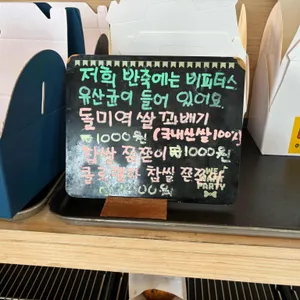 저희 반죽에는 비피더스
유산균이 들어 있어요
돌미역 쌀 꽈배기
₩1000원 (국내산쌀100%)
찹쌀 쫀쫀이 ₩1000원
찹쌀 쫀
PARTY